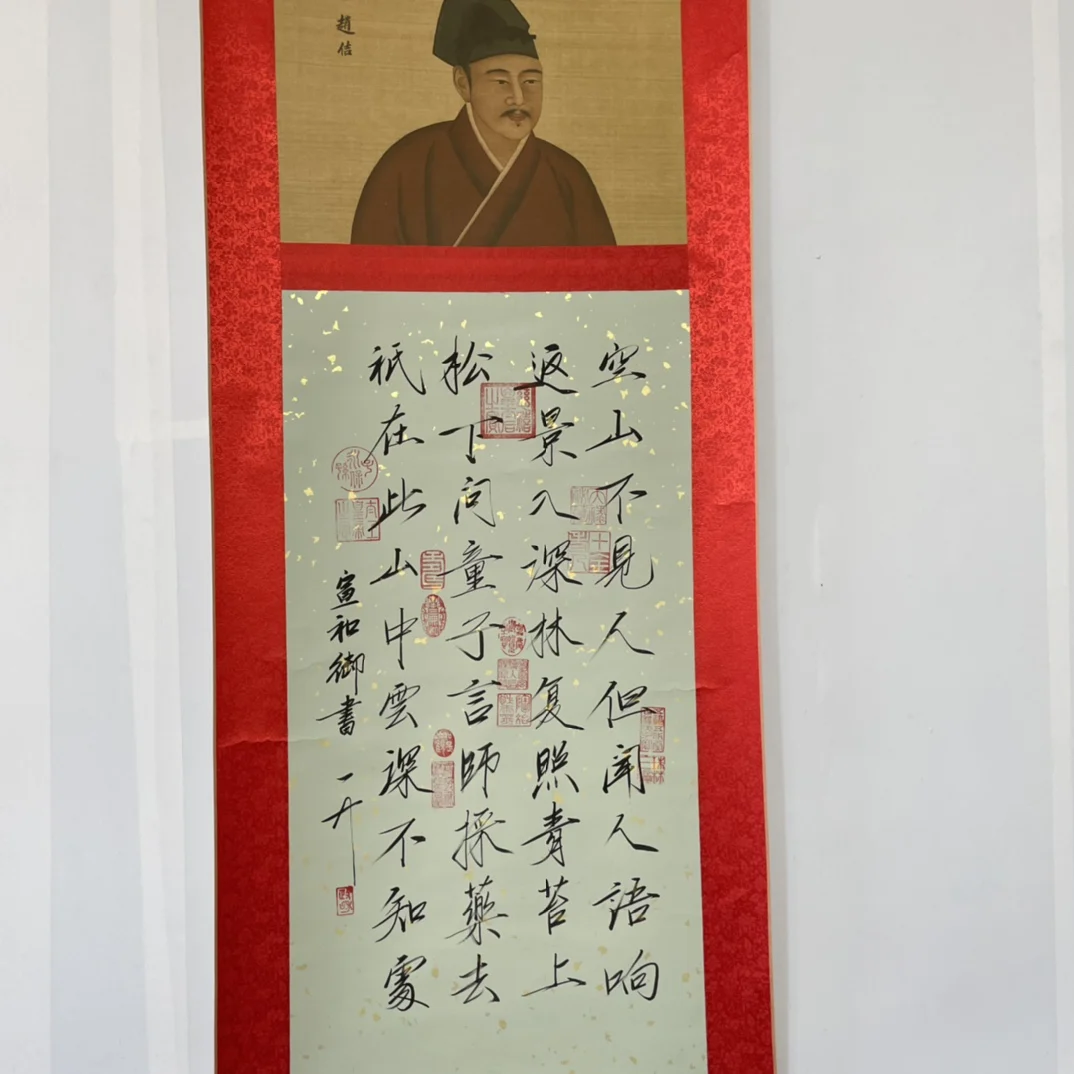 趙佶
空山不見人但闻人語响
返景入深林复照青苔上
松下问童子言師採藥去
祇在此山中雲深不知處
宣和御書